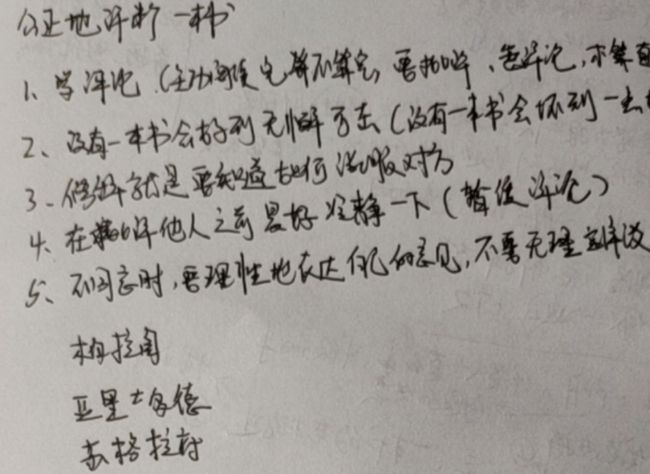 公正地评断一本书
1、学评论(主动阅读也算不算完,要批评、包评论,才算
2、没有一本书会好到无懈可击(没有一本书会坏到一无
3、修辞就是要知道如何说服对方
4、在批评他人之前最好冷静一下(暂缓评论)
5、不同意时,要理性地表达自己的意见,不要无理
柏拉图
亚里士多德
苏格拉底